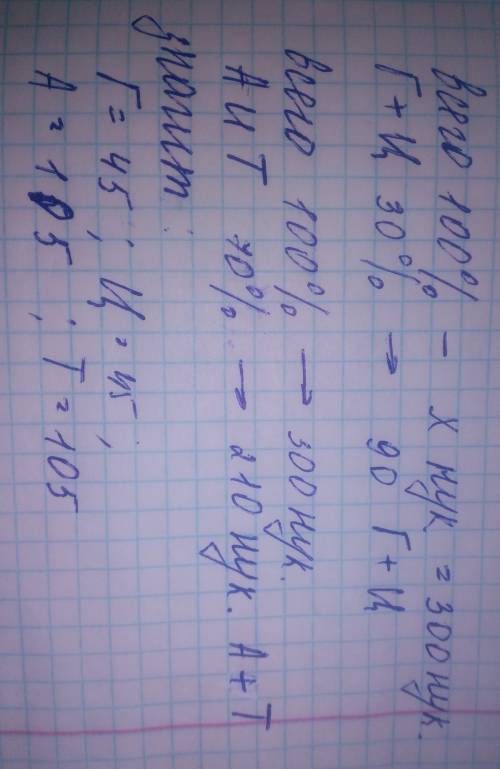 всего 100% – х нук. = 300 нук.
Г + Ц 30% → 90 Г + Ц
всего 100% → 300 нук.
А и Т 70% → 210 нук. А + Т
значит:
Г = 45; Ц = 45;
А = 105; Т = 105